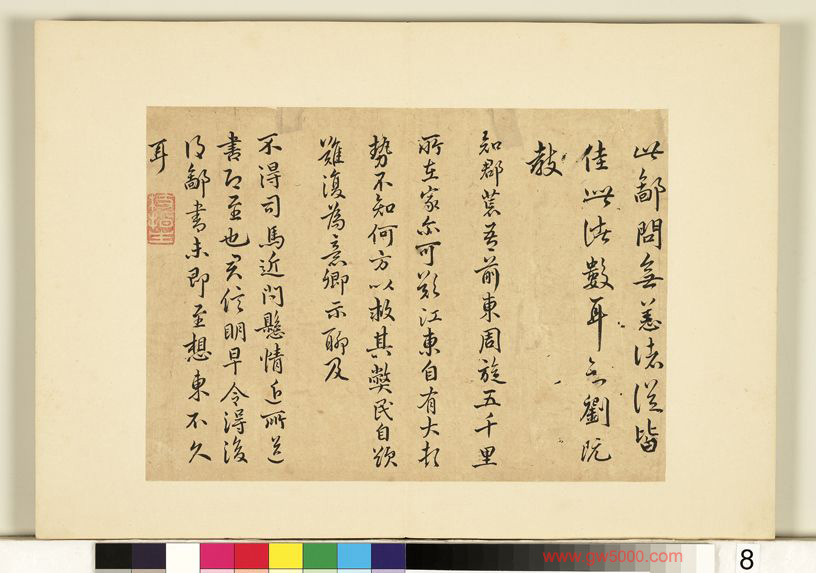 此鄱問無恙諸從皆
佳此諸數耳劉阮
知郡荒吾前東周旋五千里
所在家尔可歎江東自有大頓
勢不知何方以救其弊民自欲
難復為意卿示聊及
不得司馬近問懸情近所送
書即至也信明早令得後
得鄱書未即至想東不久
耳
www.gw5000.com
8